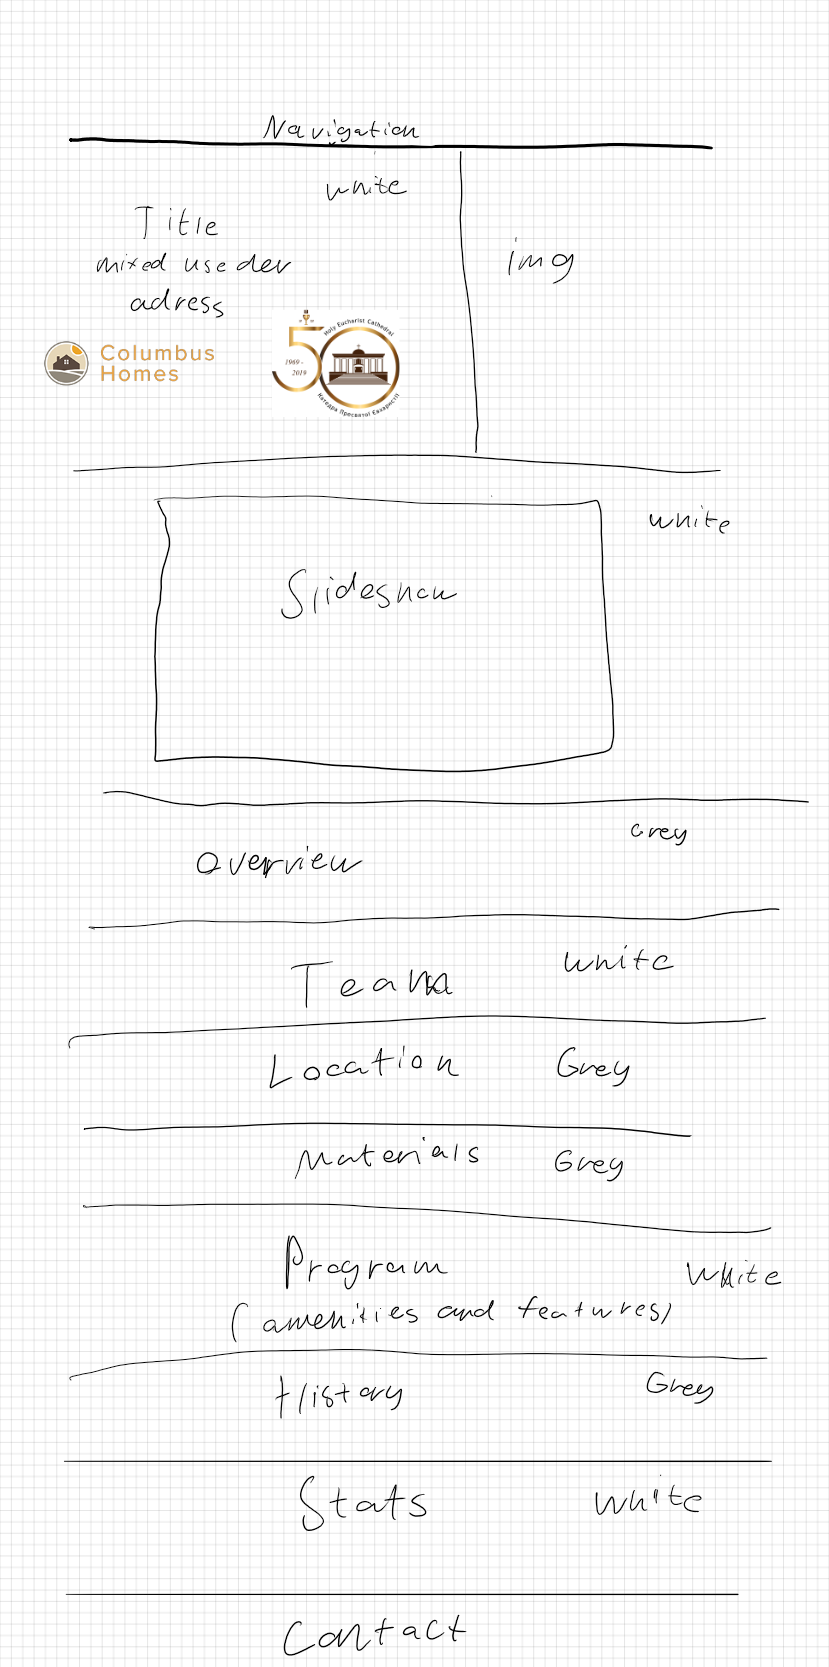 Navigation
white
Title
mixed use dev
adress
img
Columbus
Homes
Holy Eucharist Cathedral
50
1969 -
2019
Катедра Пресвятої Євхаристії
white
Slideshow
Grey
Overview
white
Team
Location Grey
Materials Grey
Program
white
(amenities and features)
Grey
History
Stats white
Contact